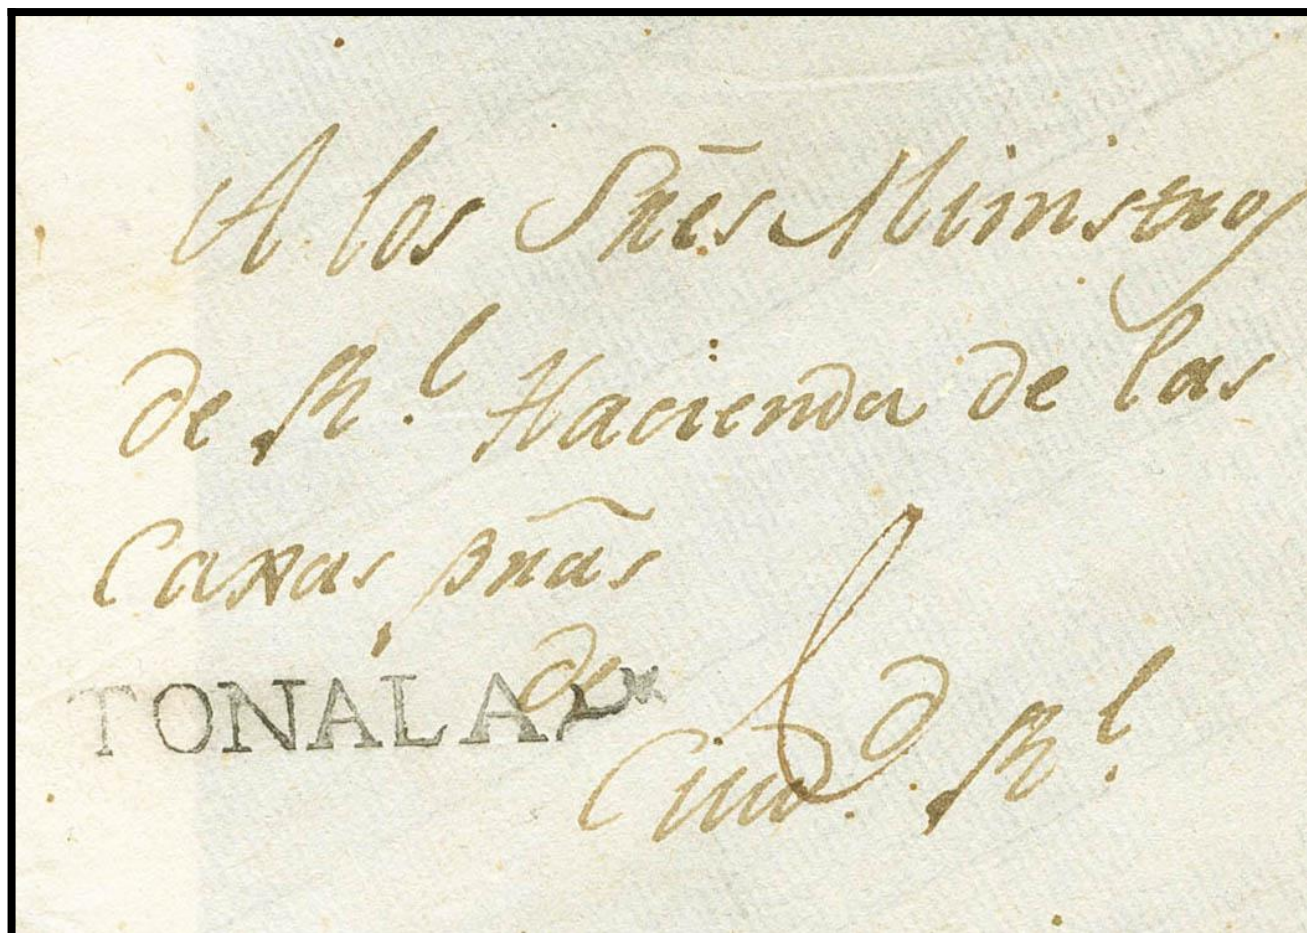 A los Sñes Ministros
de Rl. Hacienda de las
Caxas pñas
de
TONALA
Ciud. Rl.